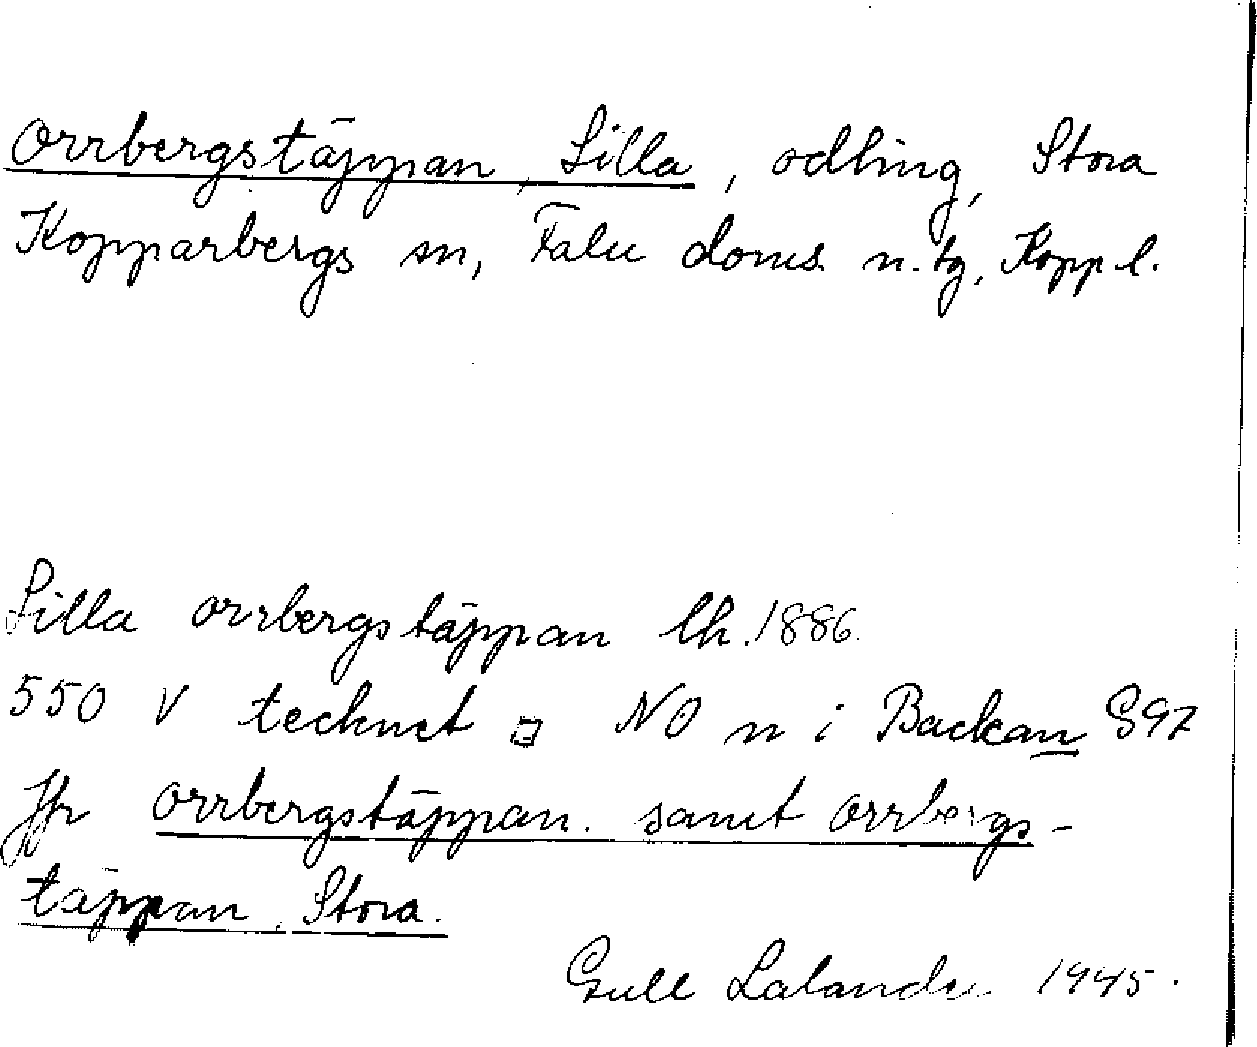 Orrbergstäppan, Lilla, odling, Stora
Kopparbergs sn, Falu doms. n. tg, Kopp l.
Lilla Orrbergstäppan lh. 1886.
550 V tecknet NO n i Backan S97
Jfr Orrbergstäppan. samt Orrbergs-
täppan, Stora.
Gull 1945.